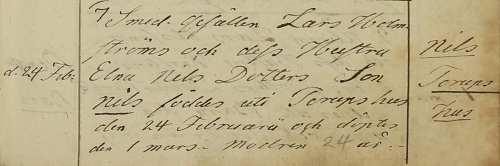 d. 24 Feb:
7 Smed-Gesällen Lars Holm-
ströms och dess Hustru
Elna Nils Dotters Son
nils föddes uti Torupshus
den 24 Februarii och döptes
den 1 mars. Modren 24 år.-
Nils
Torups
hus